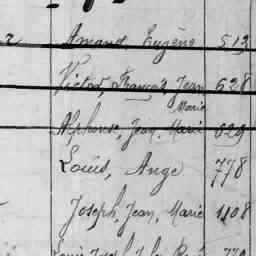 Amand Eugène 513
Victor, François, Jean 628
Marie
Alphonse, Jean, Marie 629
Louis, Ange 778
Joseph, Jean, Marie 1108
Louis